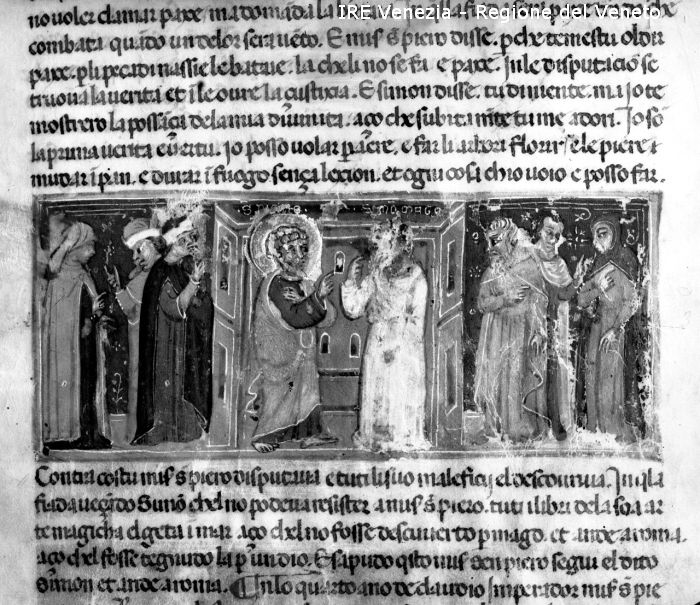 IRE Venezia - Regione del Veneto
no voler clamar paxe. ma domãda la
combata quãdo un de lor sera uẽto. E mis s̃ piero disse. pche temestu oldir
paxe. p li pecadi nassie le bataie. la che li no se fa e paxe. In le disputaciõ se
truova la uerita et ĩ le ovre la iusticia. E simon disse. tu di niente. ma io te
mostrero la possãça dela mia diuinita. aço che subitamẽte tu me adori. Io sõ
la prima uerita e uirtu. io posso uolar p aiere. e far li arbori florir. e le piere
mudar ĩ pan. e durar ĩ fuogo sença lexion. et ogni cosa ch io uoio e posso far.
Contra costu mis s̃ piero disputaua e tuti li suo maleficij el descouriua. In q̃la
fiada ueçẽdo Simõ ch el no podeua resister a mis s̃ piero. tuti i libri dela soa ar
te magicha el geta ĩ mar. aço ch el no fosse descouerto p mago. et ande a roma.
aço ch el fosse tegnudo la p un dio. E sapudo q̃sto mis sen piero segui el dito
Simon et ande a roma. In lo quarto ano de claudio Imperador mis s̃ pie